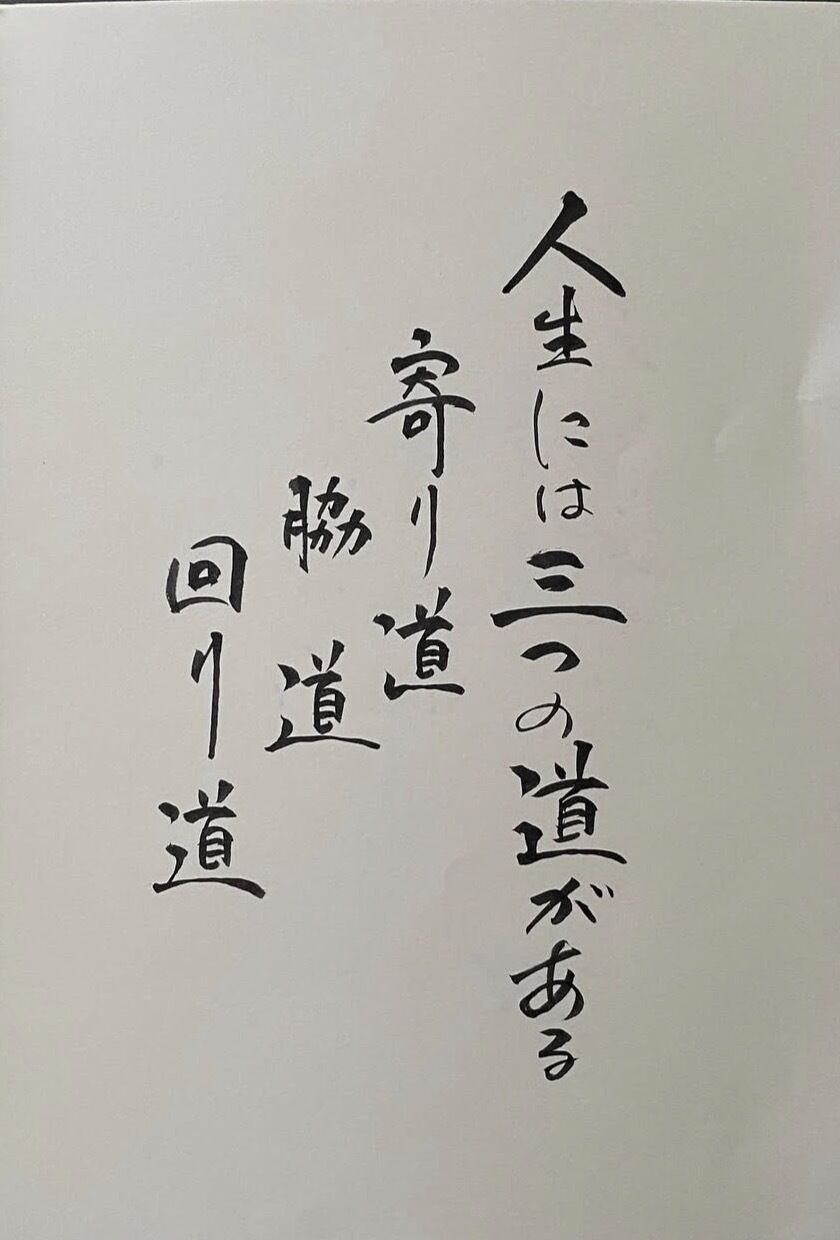 人生には三つの道がある
寄り道
脇道
回り道